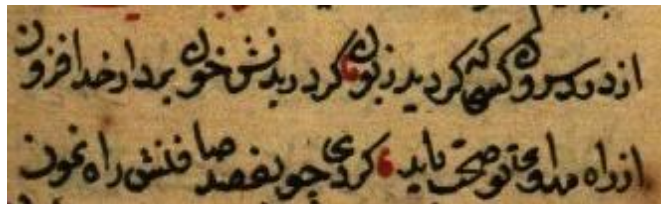 از درد سرون کسی که کردید زبون کر در بدنش خون بود از حد افزون
از راه مداوای تو صحت یابد کردی چو بفصد صافنش راه نمون